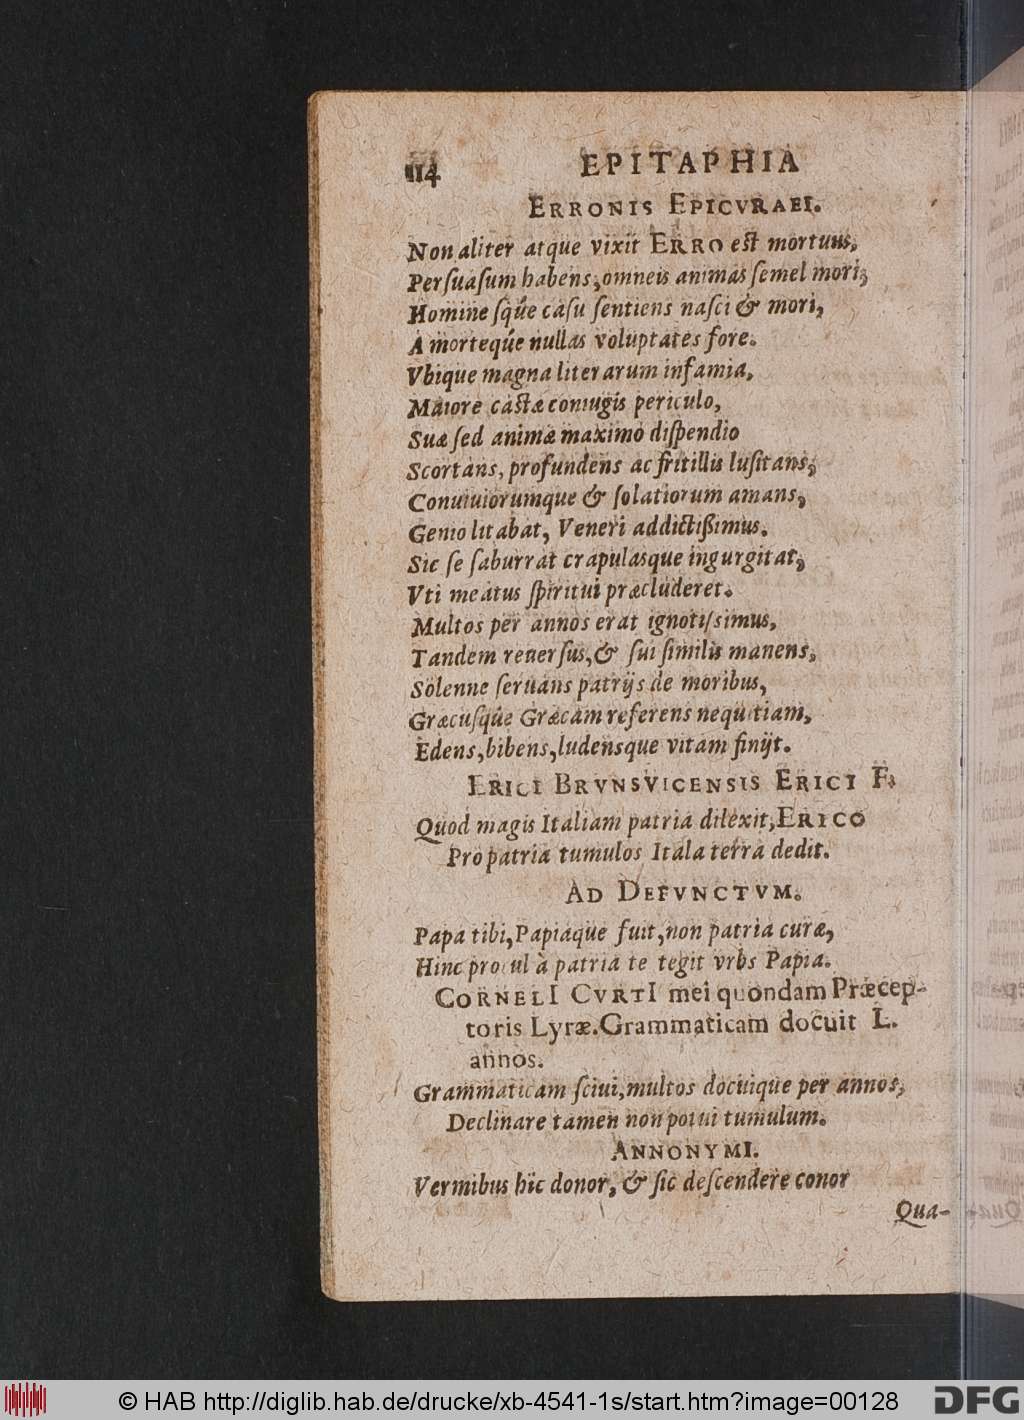 114 EPITAPHIA
ERRONIS EPICVRAEI.
Non aliter atque vixit ERRO est mortuus,
Perſuaſum habens, omneis animas ſemel mori;
Homineſqúe caſu ſentiens naſci & mori,
A morteqúe nullas voluptates fore.
Vbique magna literarum infamia,
Maiore castæ coniugis periculo,
Suæ ſed animæ maximo diſpendio
Scortans, profundens ac fritillis luſitans;
Conuiuiorumque & ſolatiorum amans,
Genio litabat, Veneri addictißimus.
Sic ſe ſaburrat crapulasque ingurgitat,
Vti meatus ſpiritui præcluderet.
Multos per annos erat ignotiſsimus,
Tandem reuerſus, & ſui ſimilis manens,
Solenne ſeruans patrijs de moribus,
Græcuſqúe Græcam referens nequitiam,
Edens, bibens, ludensque vitam finijt.
ERICI BRVNSVICENSIS ERICI F.
Quod magis Italiam patria dilexit, ERICO
Pro patria tumulos Itala terra dedit.
AD DEFVNCTVM.
Papa tibi, Papiaque fuit, non patria curæ,
Hinc procul à patria te tegit vrbs Papia.
CORNELI CVRTI mei quondam Præcep-
toris Lyræ. Grammaticam docuit L.
annos.
Grammaticam ſciui, multos docuique per annos,
Declinare tamen non potui tumulum.
ANNONYMI.
Vermibus hîc donor, & ſic deſcendere conor
Qua-
© HAB http://diglib.hab.de/drucke/xb-4541-1s/start.htm?image=00128
DFG